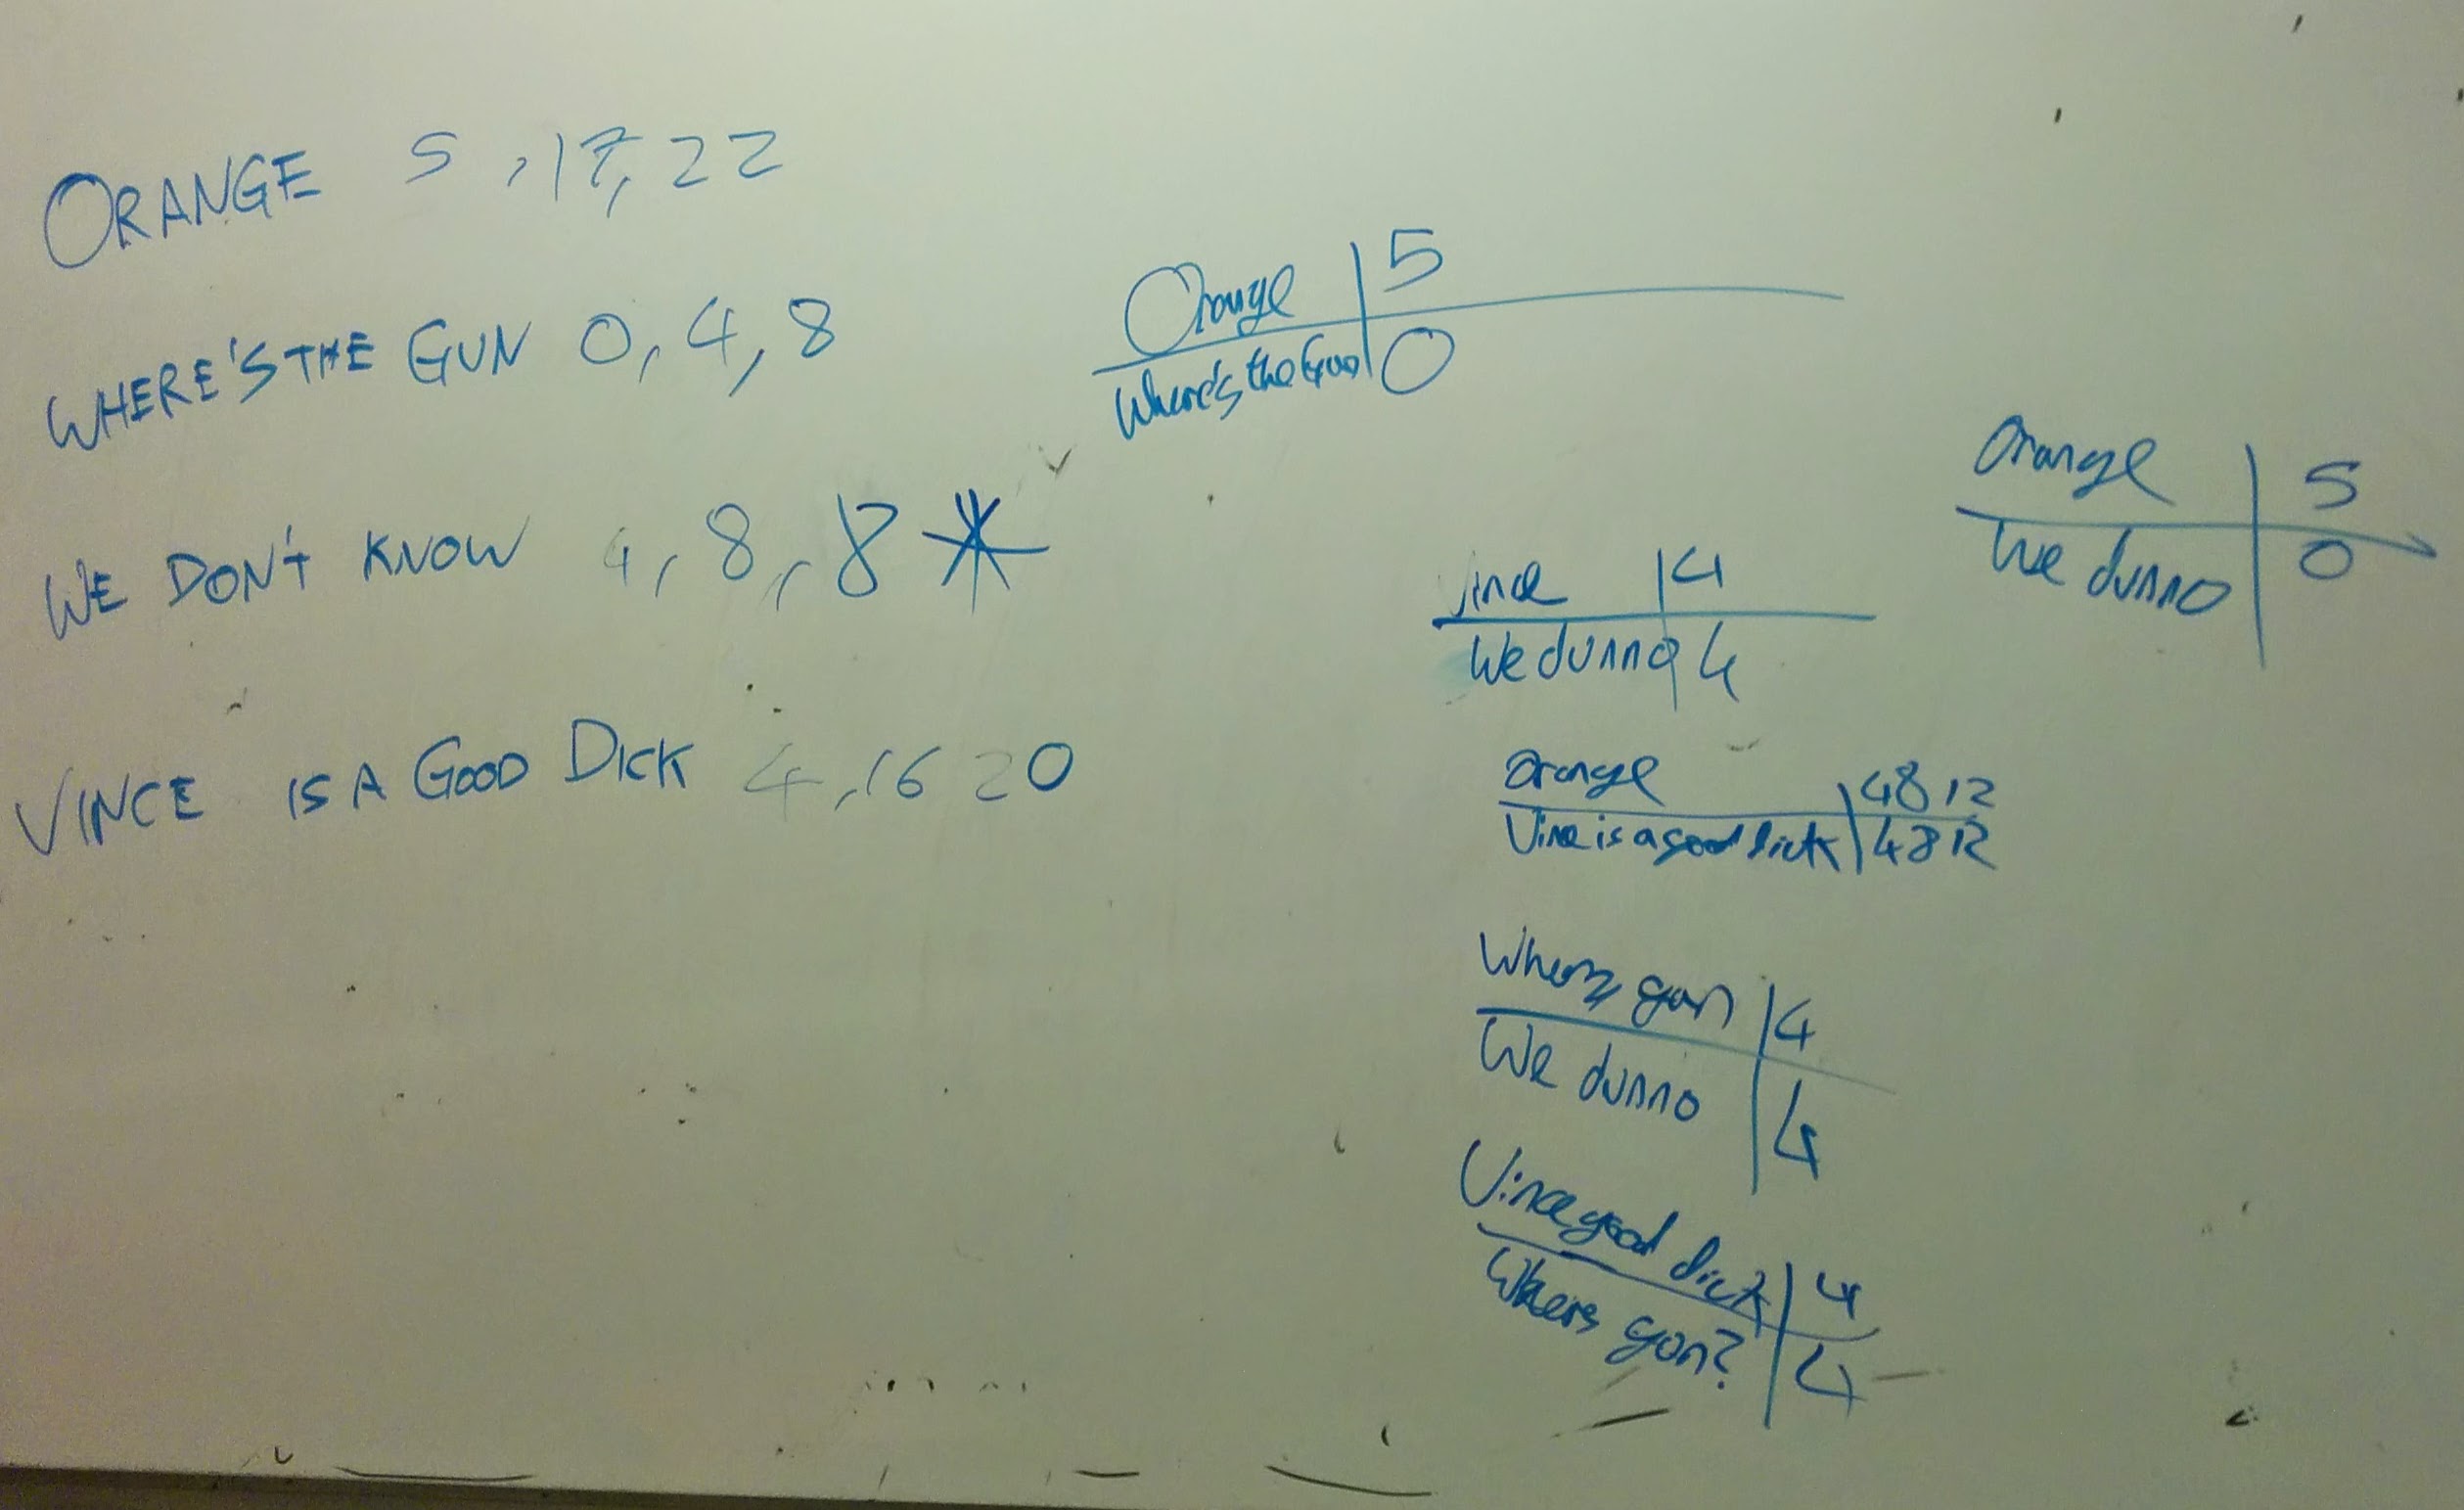 ORANGE 5, 17, 22
WHERE'S THE GUN 0, 4, 8
WE DON'T KNOW 4, 8, 8 *
VINCE IS A GOOD DICK 4, 16 20
Orange | 5
Where's the Gun | 0
Orange | 5
We dunno | 0
Vince | 4
We dunno | 4
Orange | 4 8 12
Vince is a good dick | 4 8 12
Wheres gun | 4
We dunno | 4
Vince good dick | 4
Wheres gun? | 4